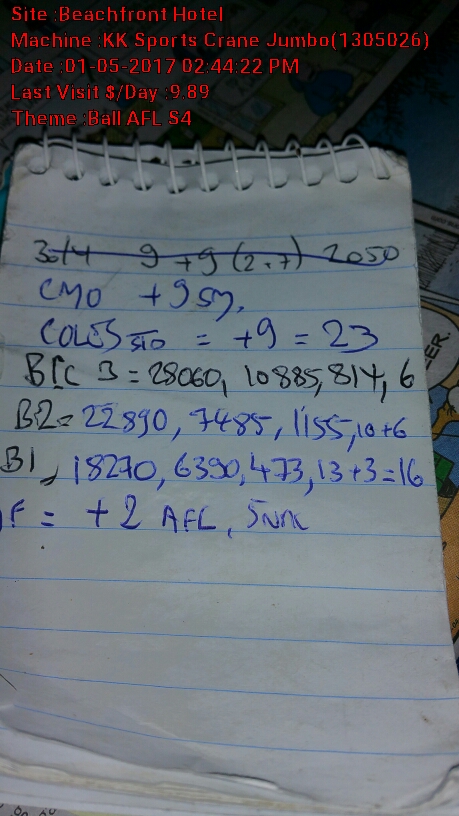 Site :Beachfront Hotel
Machine :KK Sports Crane Jumbo(1305026)
Date :01-05-2017 02:44:22 PM
Last Visit $/Day :9.89
Theme :Ball AFL S4
9 +9 (2.7) 2050
CMO +9 SM,
COLES = +9 = 23
BIC 3 = 28060, 10885, 814, 6
B2 = 22890, 7485, 1155, 10+6
B1, 18270, 6390, 473, 13+3=16
F = +2 AFL,